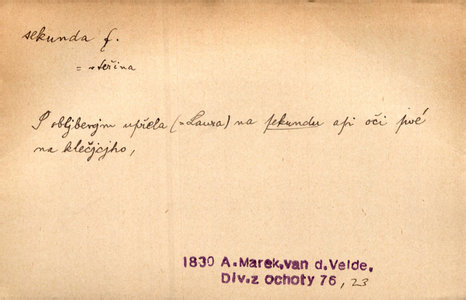 sekunda f.
= vteřina
S obljbenjm upřela (= Laura) na sekundu asi oči své
na klečjcjho,
1830 A.Marek,van d.Velde,
Div.z ochoty 76, 23